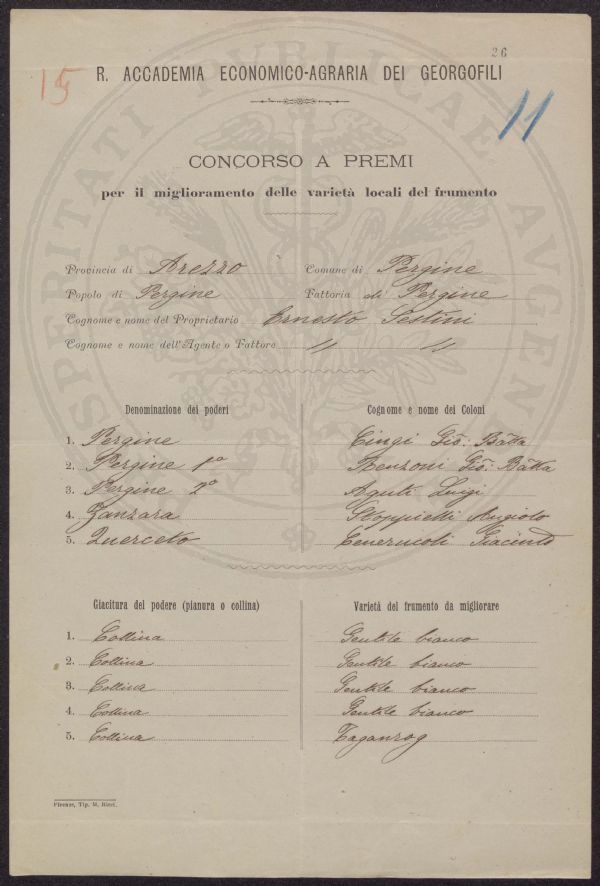 26
15
R. ACCADEMIA ECONOMICO-AGRARIA DEI GEORGOFILI
11
CONCORSO A PREMI
per il miglioramento delle varietà locali del frumento
Provincia di Arezzo Comune di Pergine
Popolo di Pergine Fattoria di Pergine
Cognome e nome del Proprietario Ernesto Sestini
Cognome e nome dell'Agente o Fattore " "
Denominazione dei poderi Cognome e nome dei Coloni
1. Pergine Cingi Gio: Batta
2. Pergine 1º Gio: Batta
3. Pergine 2º Aguti Luigi
4. Zanzara Stoppielli Angiolo
5. Querceto Cenerucoli Giacinto
Giacitura del podere (pianura o collina) Varietà del frumento da migliorare
1. Collina Gentile bianco
2. Collina Gentile bianco
3. Collina Gentile bianco
4. Collina Gentile bianco
5. Collina Taganrog
Firenze, Tip. M. Ricci.
PROSPERITATI PUBLICAE AUGENDAE